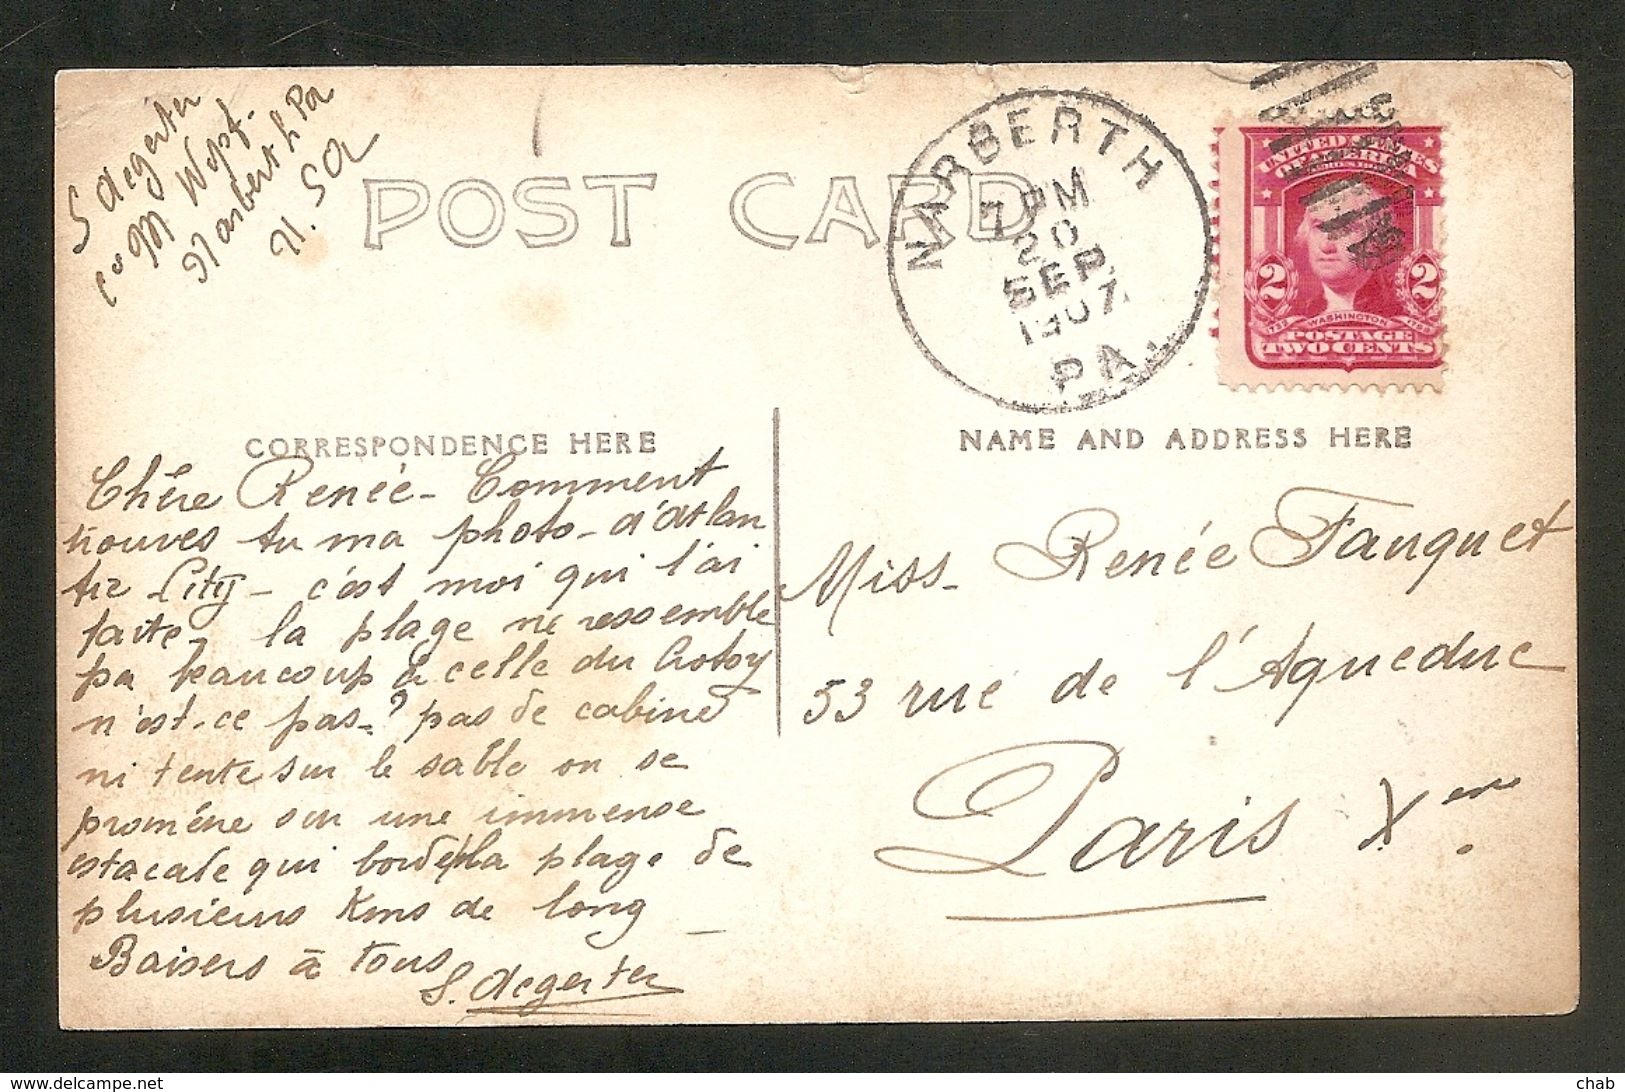 S Degerter
Narberth Pa
U. SA
POST CARD
NARBERTH
7 PM
20
SEP
1907
PA.
UNITED STATES
OF AMERICA
2 2
1732 WASHINGTON 1799
POSTAGE
TWO CENTS
CORRESPONDENCE HERE
Chère Renée - Comment
trouves tu ma photo - d'Atlan
tic City - c'est moi qui l'ai
faite, la plage ne ressemble
pas beaucoup à celle du Crotoy
n'est-ce pas-? pas de cabine
ni tente sur le sable on se
promène sur une immense
estacade qui borde la plage de
plusieurs Kms de long
Baisers à tous
S. Degerter
NAME AND ADDRESS HERE
Miss - Renée Fauquet
53 rue de l'Aqueduc
Paris Xème.
www.delcampe.net
chab